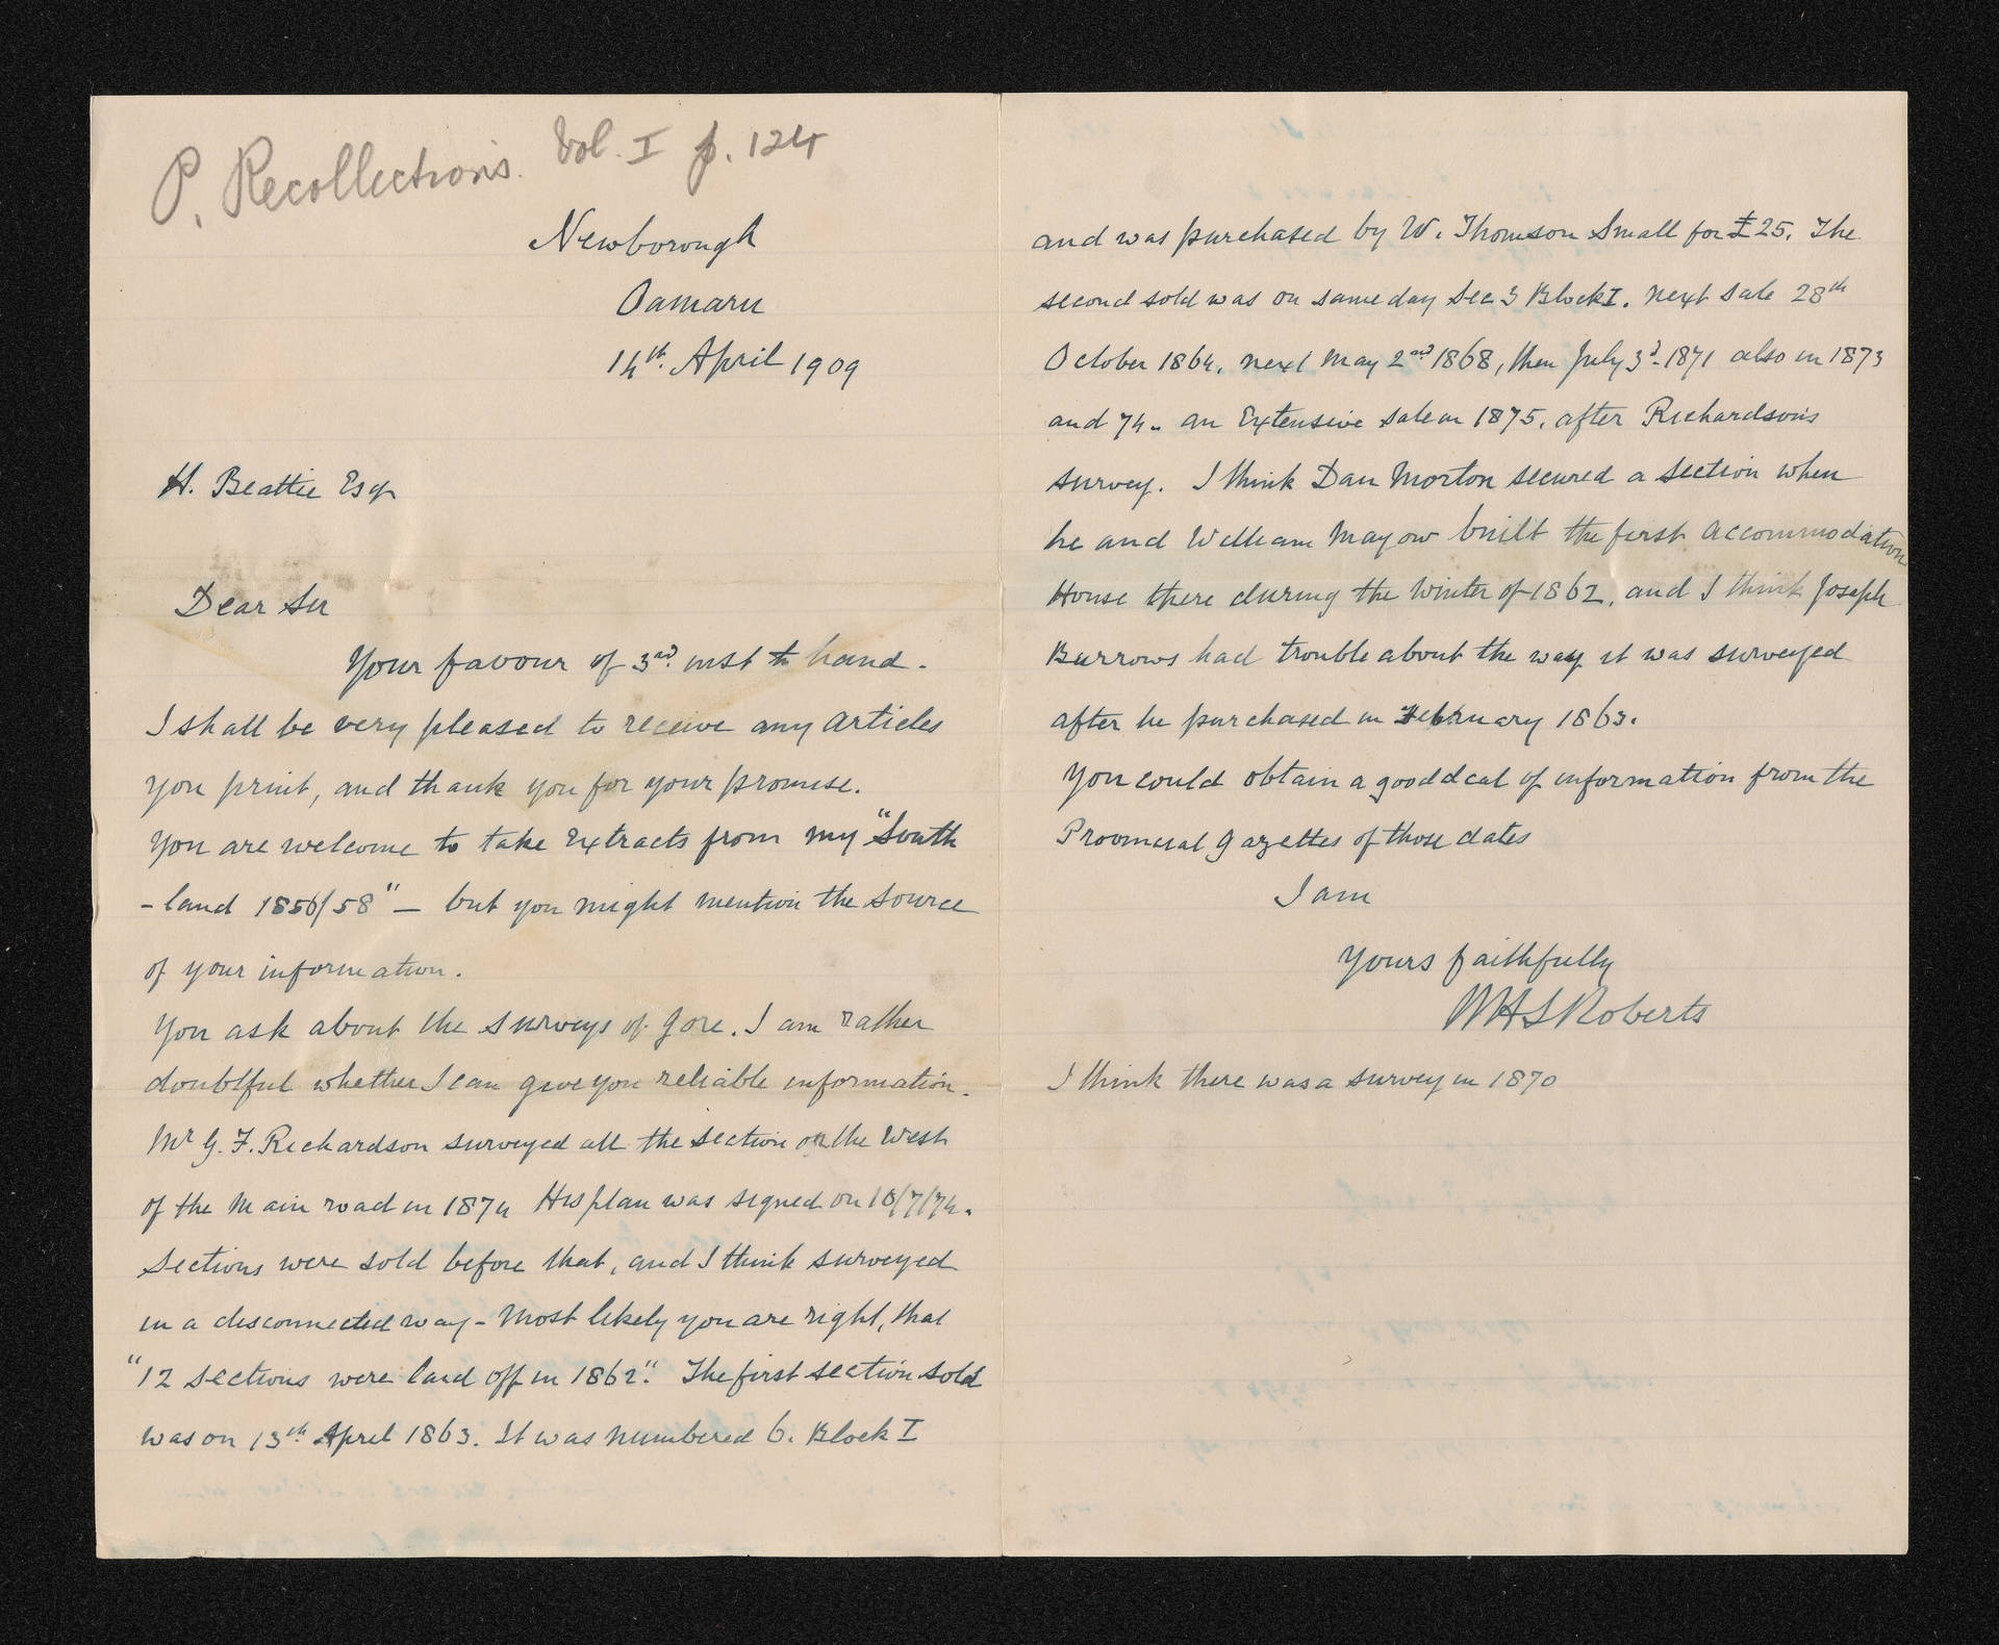 P. Recollections. Vol. I p. 124
Newborough
Oamaru
14th. April 1909
H. Beattie Esqr
Dear Sir
Your favour of 3rd. inst to hand.
I shall be very pleased to receive any articles
you print, and thank you for your promise.
You are welcome to take extracts from my "South
-land 1856/58" - but you might mention the source
of your information.
You ask about the surveys of Gore. I am rather
doubtful whether I can give you reliable information.
Mr G. F. Richardson surveyed all the section on the West
of the Main road in 1874 His plan was signed on 18/7/74.
Sections were sold before that, and I think surveyed
in a disconnected way - Most likely you are right, that
"12 sections were laid off in 1862". The first section sold
was on 13th April 1863. It was numbered 6. Block I
and was purchased by W. Thomson Small for £25. The
second sold was on same day Sec 3 Block I. Next sale 28th
October 1864, next May 2nd 1868, then July 3d. 1871 also in 1873
and 74. an Extensive sale in 1875, after Richardson's
survey. I think Dan Morton secured a section when
he and William Mayow built the first Accommodation
House there during the Winter of 1862, and I think Joseph
Burrows had trouble about the way it was surveyed
after he purchased in February 1863.
You could obtain a good deal of information from the
Provincial Gazettes of those dates
I am
Yours faithfully
WHSRoberts
I think there was a survey in 1870